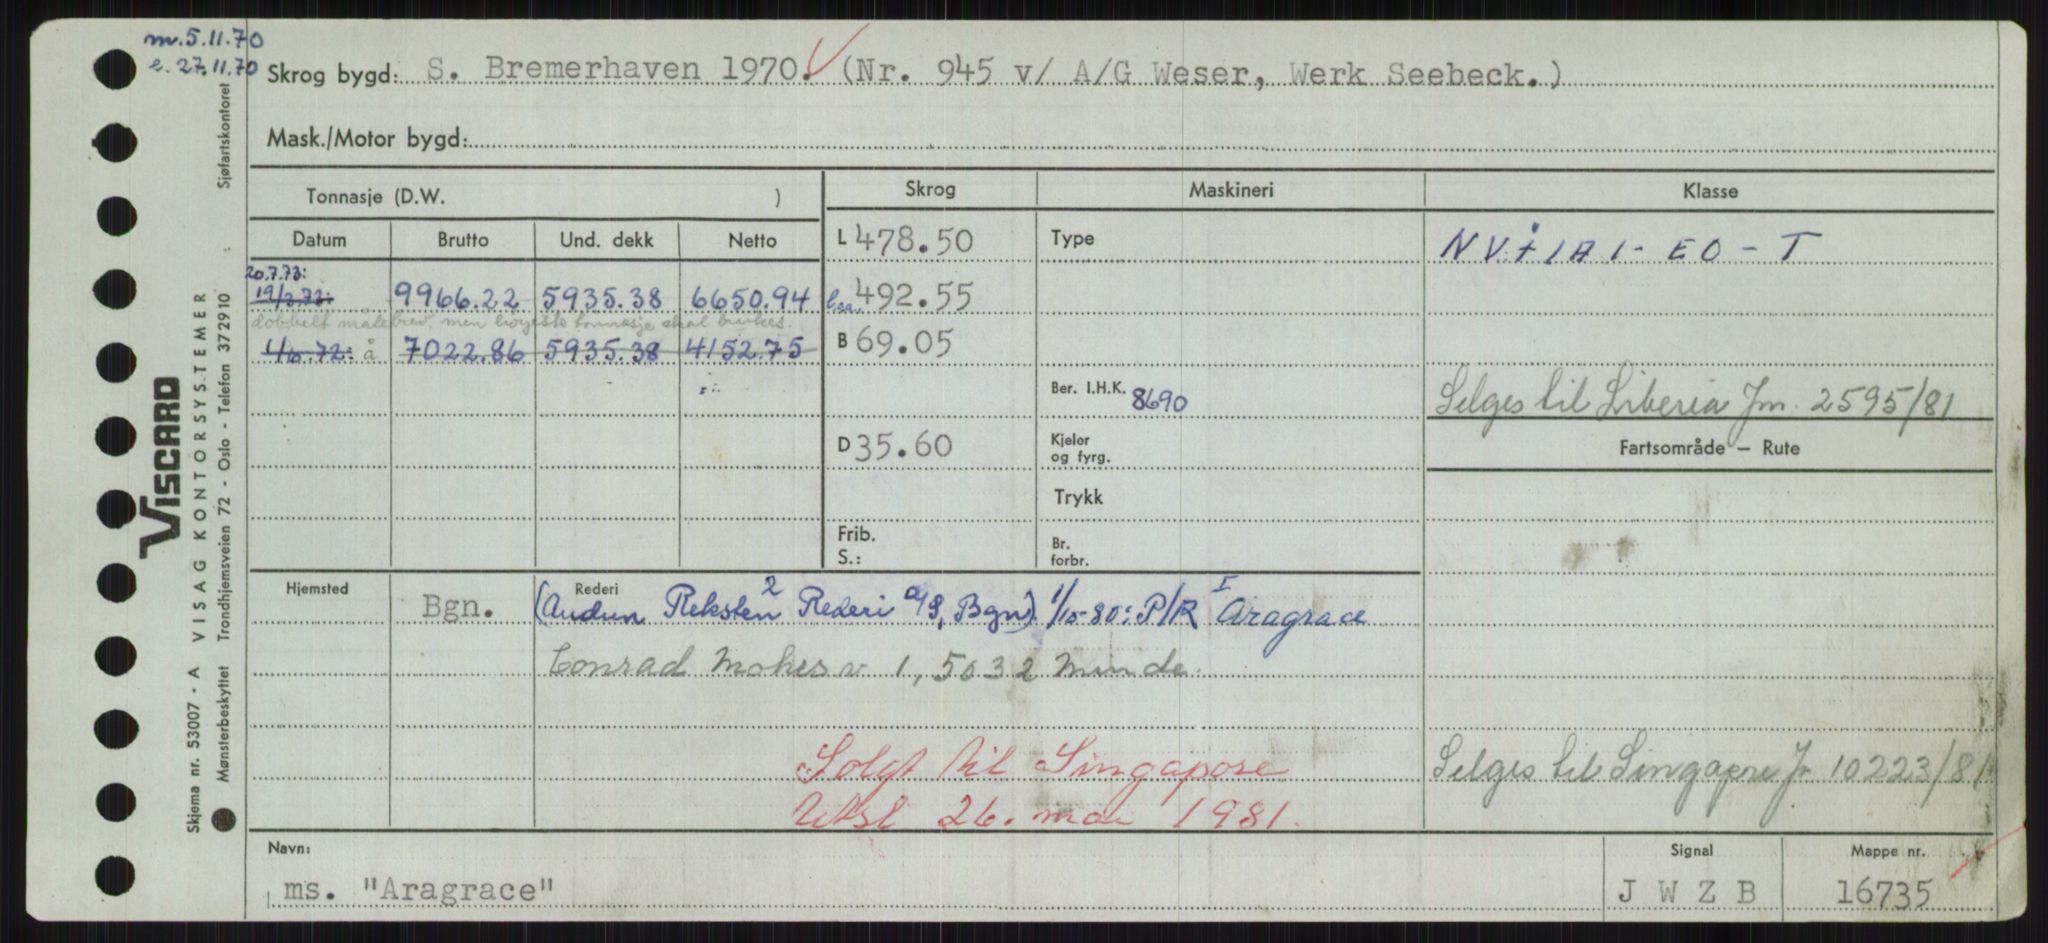 m. 5.11.70
e. 27.11.70
Skrog bygd: S. Bremerhaven 1970. (Nr. 945 v/ A/G Weser, Werk Seebeck.)
Mask./Motor bygd:
Tonnasje (D.W. )
Skrog Maskineri Klasse
Datum Brutto Und. dekk Netto
L 478.50 Type NV + 1A1 - EO - T
20.7.73:
19/3.72: 9966.22 5935.38 6650.94 Loa. 492.55
dobbelt målebrev, men høyeste tonnasje skal brukes.
1/10.72: å 7022.86 5935.38 4152.75 B 69.05
Ber. I.H.K. 8690 Selges til Liberia Jm. 2595/81
D 35.60 Kjeler og fyrg. Fartsområde — Rute
Trykk
Frib.
S.:
Br. forbr.
Hjemsted Bgn. Rederi (Audun Reksten 2 Rederi a/s, Bgn) 1/10-80: P/R I Aragrace
Conrad Mohrs v 1, 5032 Minde
Solgt til Singapore Selges til Singapore J 10223/81
Utsl 26. mai 1981.
Navn: ms. "Aragrace"
Signal J W Z B
Mappe nr. 16735
VISCARD
Skjema nr. 53007 - A VISAG KONTORSYSTEMER
Mønsterbeskyttet Trondhjemsveien 72 - Oslo - Telefon 372910 Sjøfartskontoret